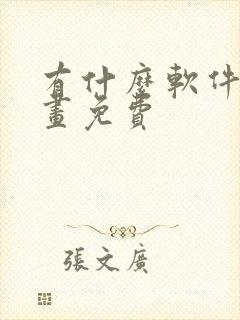 有什麼軟件
畫免費
張文廣